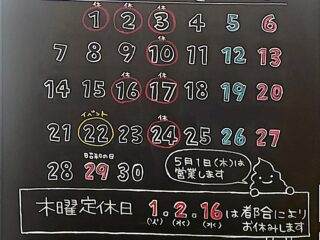 休 休 休
1 2 3 4 5 6
休
7 8 9 10 11 12 13
休 休
14 15 16 17 18 19 20
イベント 休
21 22 23 24 25 26 27
昭和の日
28 29 30
5月1日(水)は
営業します
木曜定休日 1.2.16は都合により
(火)(水)(水) お休みします